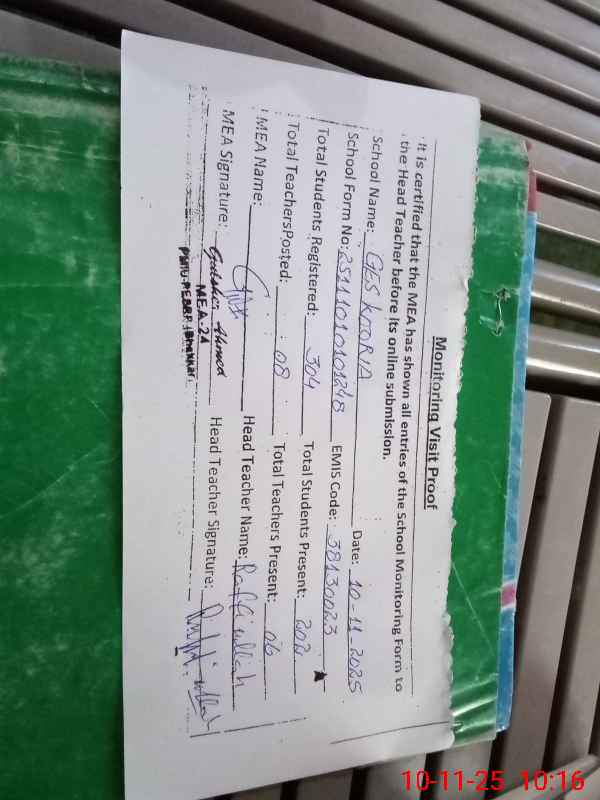 Monitoring Visit Proof
It is certified that the MEA has shown all entries of the School Monitoring Form to
the Head Teacher before its online submission.
School Name: GES Kotoria Date: 10-11-2025
School Form No: 2511101010 1248 EMIS Code: 38130023
Total Students Registered: 304 Total Students Present: 202
Total TeachersPosted: 08 Total Teachers Present: 06
MEA Name: Head Teacher Name: Raffi ullah
MEA Signature: Gulsher Ahmed Head Teacher Signature:
MEA-24
PMIU-PESRP (Bhakkar)
10-11-25 10:16